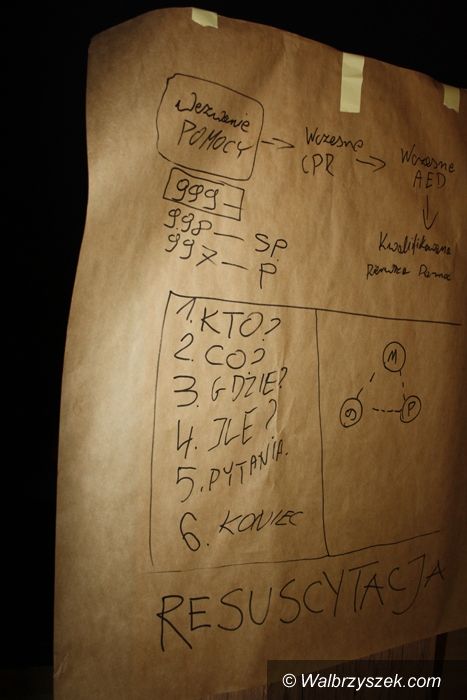 Wezwanie
POMOCY
Wczesne
CPR
Wczesne
AED
Kwalifikowana
Pierwsza Pomoc
999
998 — SP.
997 — P
1. KTO?
2. CO?
3. GDZIE?
4. ILE?
5. PYTANIA.
6. KONIEC
M
P
RESUSCYTACJA
© Walbrzyszek.com